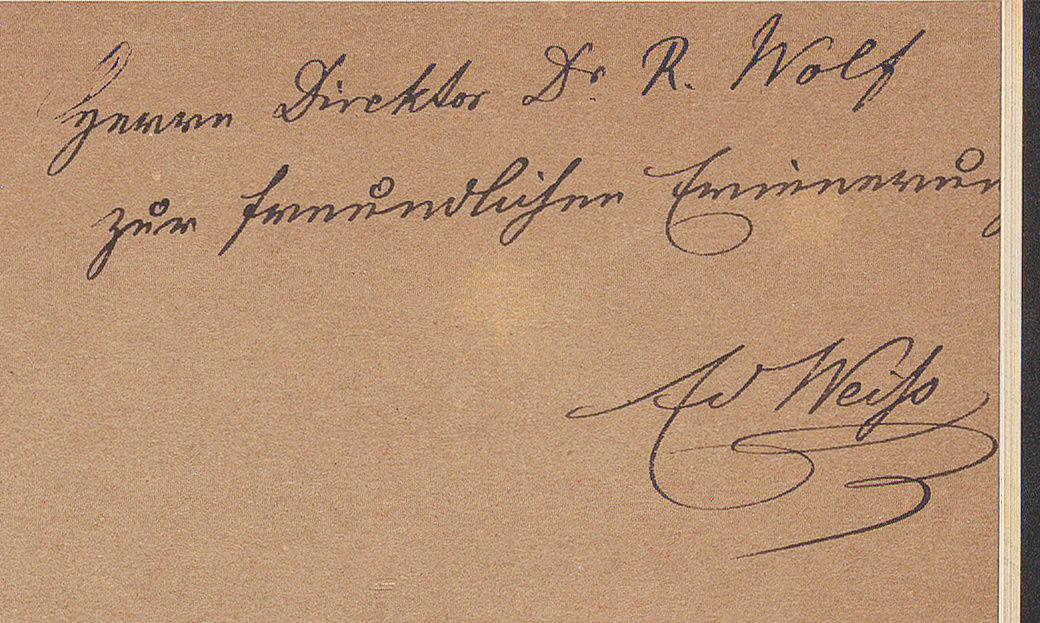 Herrn Direktor Dr. R. Wolf
zur freundlichen Erinnerung
Ed Weiss